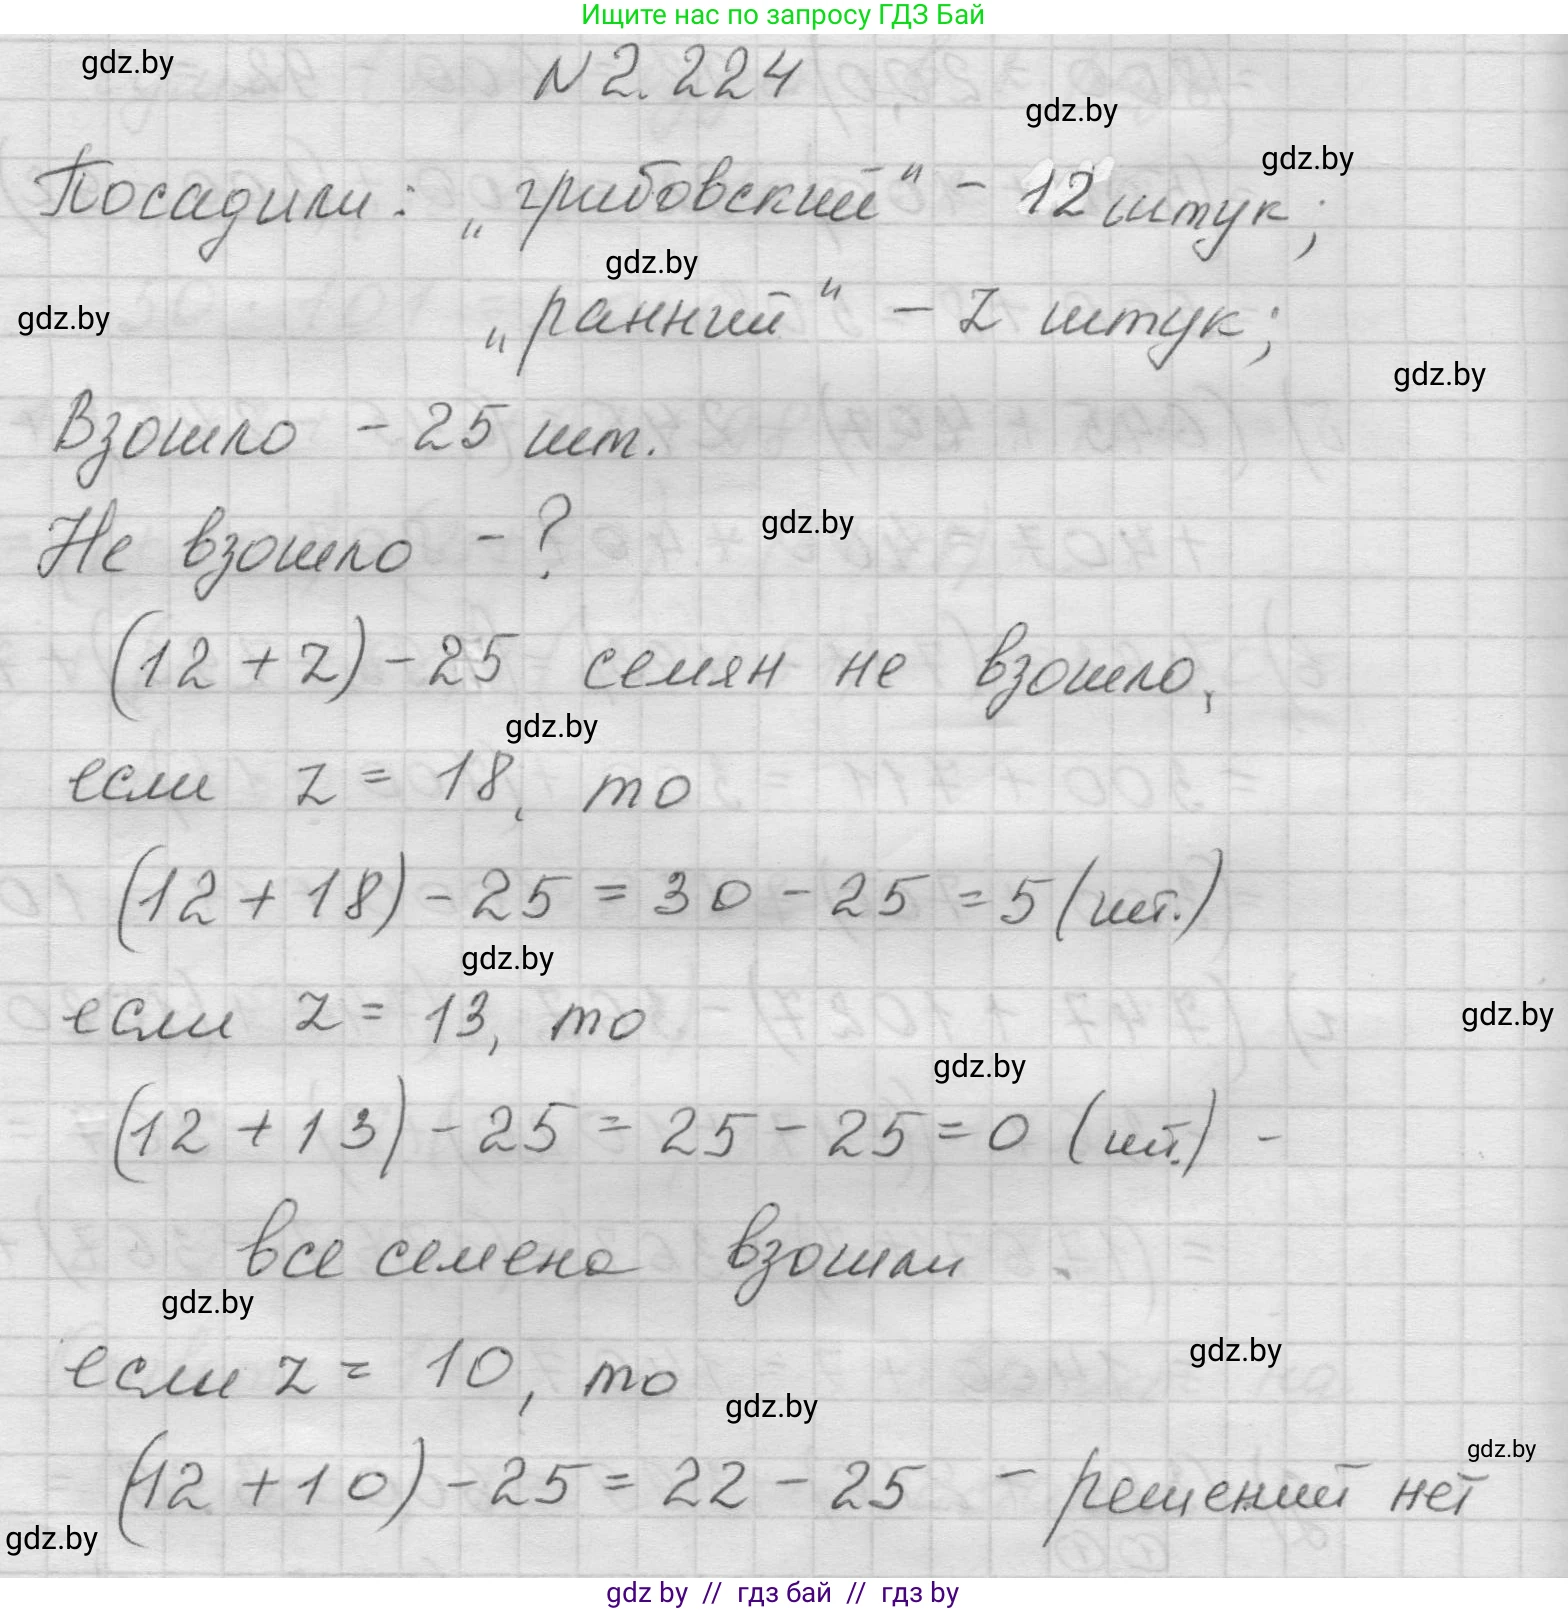 Ищите нас по запросу ГДЗ Бай
gdz.by
N 2.224
gdz.by
gdz.by
Посадили: „грибовский" - 12 штук;
gdz.by
gdz.by
„ранний" - z штук;
gdz.by
Взошло - 25 шт.
gdz.by
Не взошло - ?
(12 + z) - 25 семян не взошло,
gdz.by
если z = 18, то
(12 + 18) - 25 = 30 - 25 = 5 (шт.)
gdz.by
если z = 13, то
gdz.by
gdz.by
(12 + 13) - 25 = 25 - 25 = 0 (шт.) -
все семена взошли.
gdz.by
если z = 10, то
gdz.by
gdz.by
gdz.by
(12 + 10) - 25 = 22 - 25 - решений нет
gdz.by
gdz by // гдз бай // гдз by